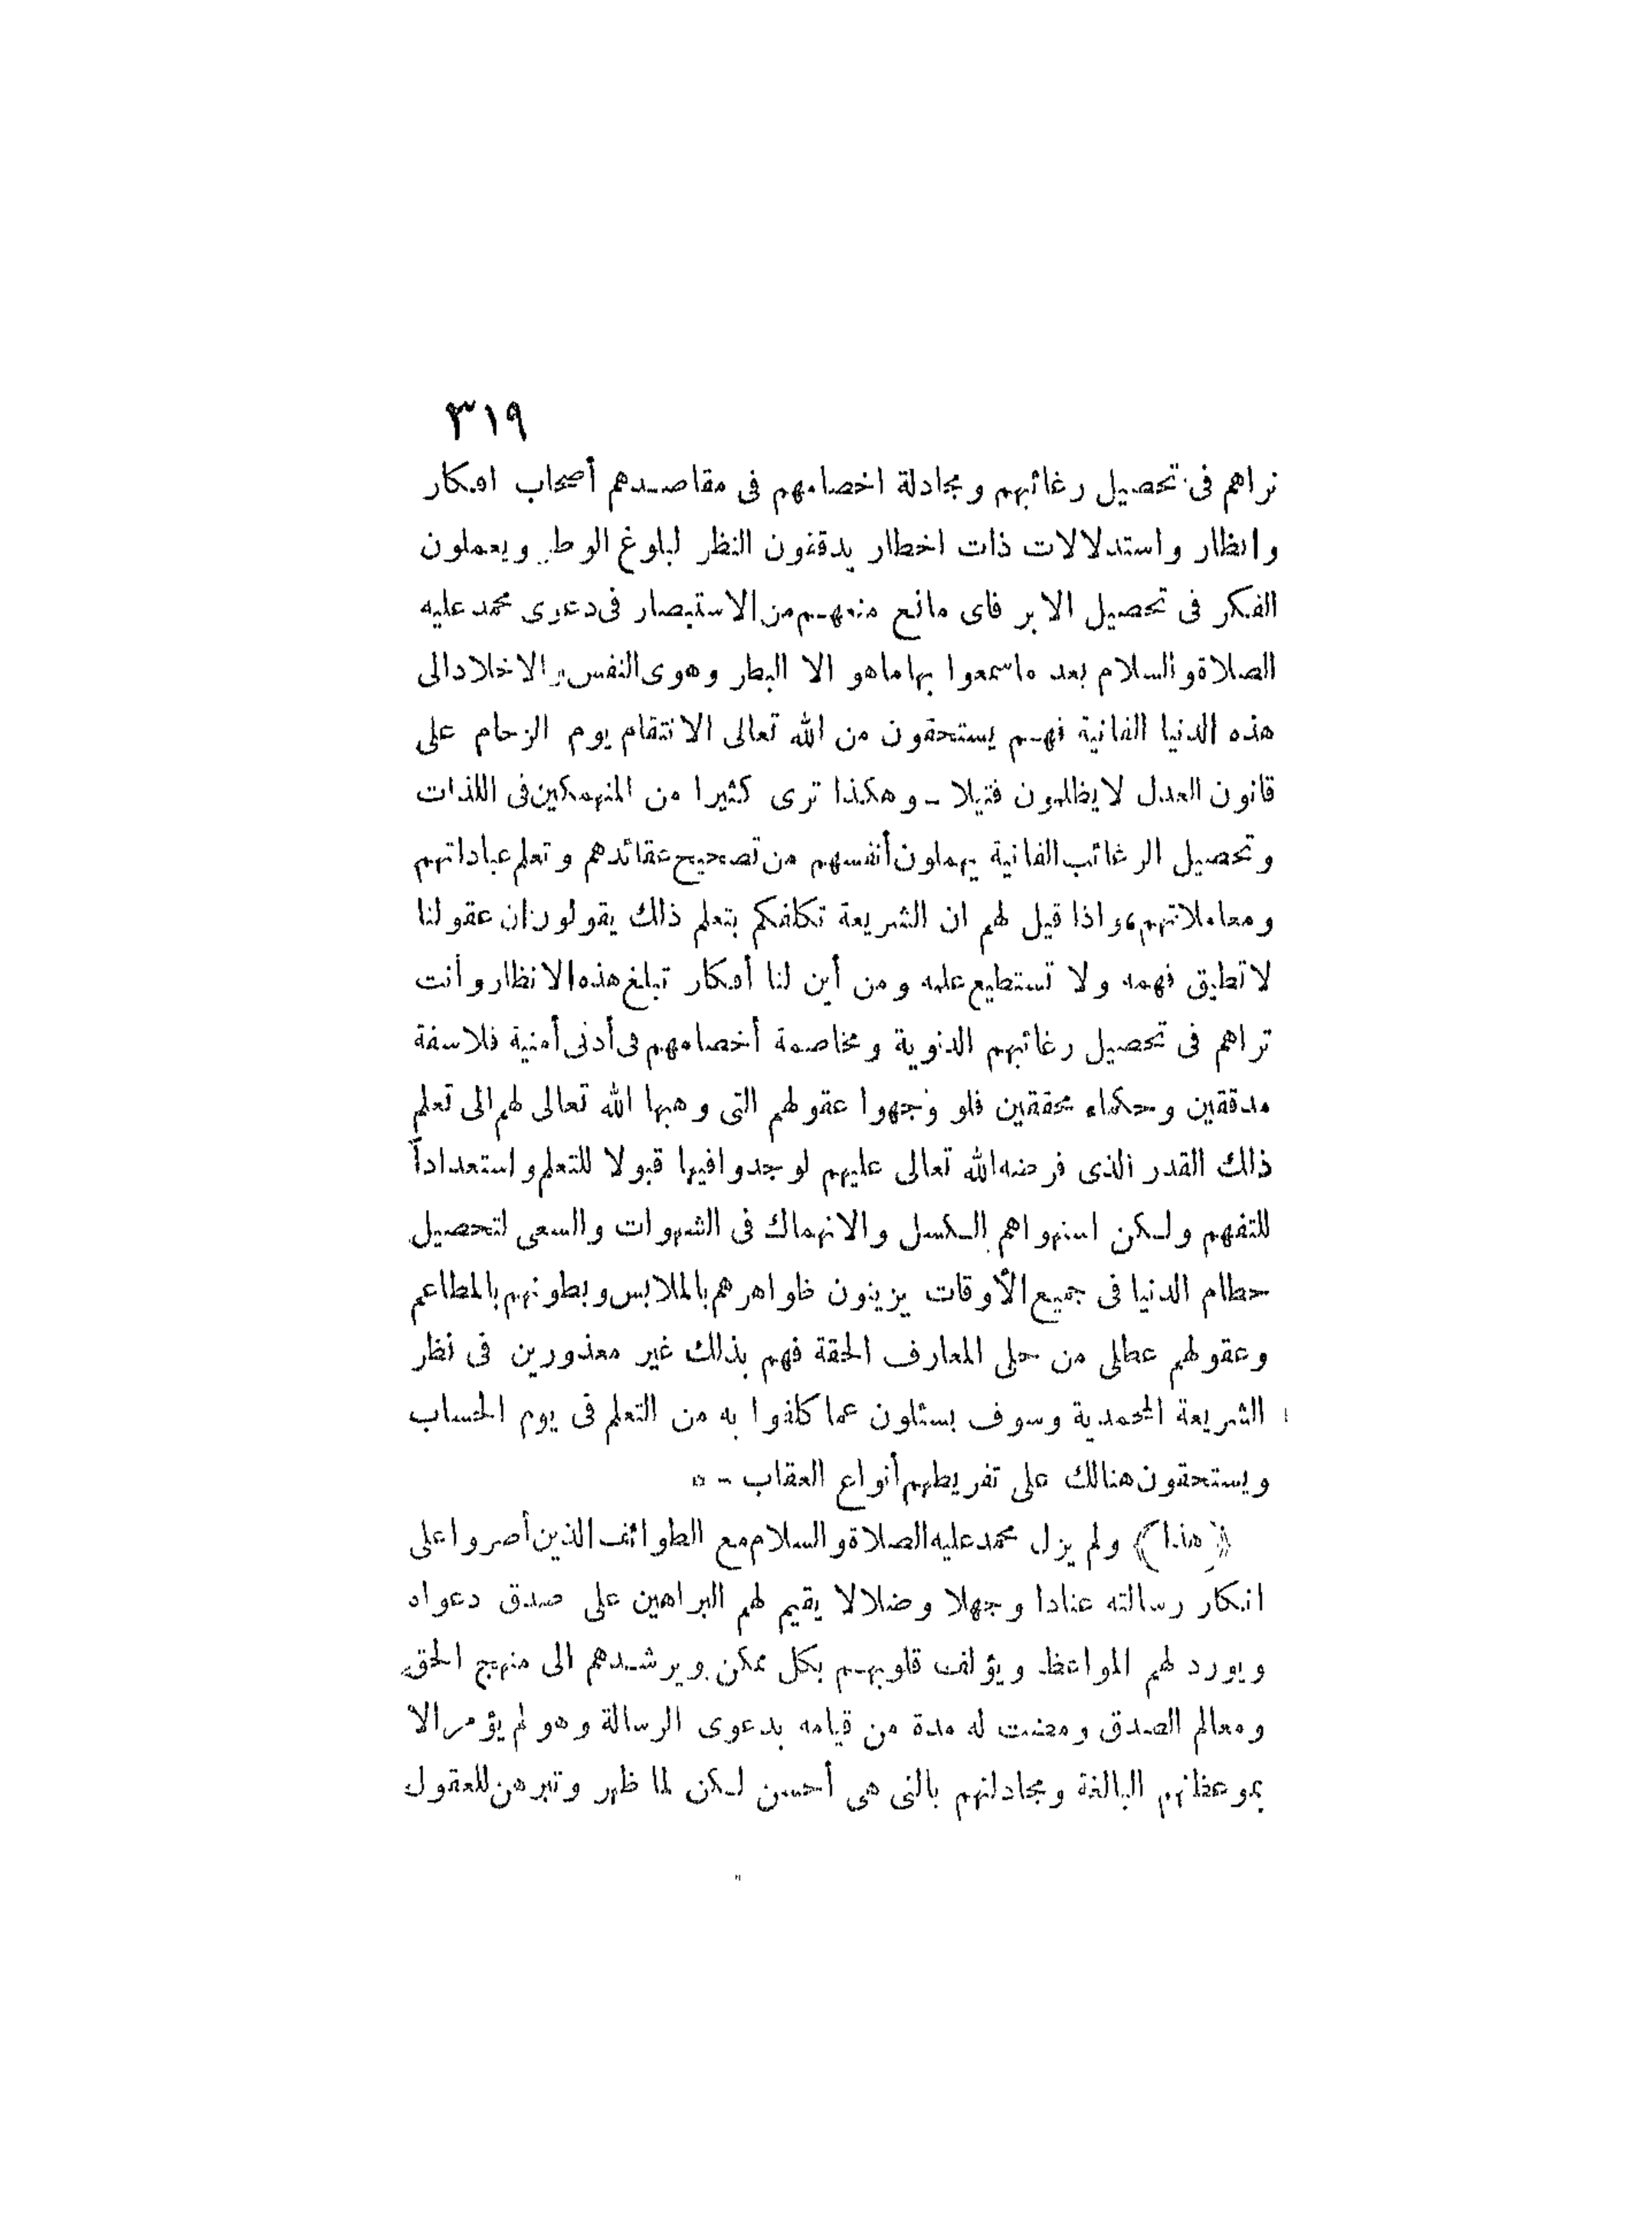 ٣١٩
تراهم فى تحصيل رغائبهم ومجادلة اخصامهم فى مقاصدهم أصحاب افكار
وانظار واستدلالات ذات اخطار يدققون النظر لبلوغ الوطر ويعملون
الفكر فى تحصيل الابر فاى مانع منعهم من الاستبصار فى دعوى محمد عليه
الصلاة والسلام بعد ما سمعوا بها ماهو الا البطر وهوى النفس والاخلاد الى
هذه الدنيا الفانية فهم يستحقون من الله تعالى الانتقام يوم الزحام على
قانون العدل لا يظلمون فتيلا ـ وهكذا ترى كثيرا من المنهمكين فى اللذات
وتحصيل الرغائب الفانية يهملون أنفسهم من تصحيح عقائدهم وتعلم عباداتهم
ومعاملاتهم، واذا قيل لهم ان الشريعة تكلفكم بتعلم ذلك يقولون ان عقولنا
لا تطيق فهمه ولا تستطيع علمه ومن أين لنا أفكار تبلغ هذه الانظار وأنت
تراهم فى تحصيل رغائبهم الدنوية ومخاصمة أخصامهم فى أدنى أمنية فلاسفة
مدققين وحكماء محققين فلو وجهوا عقولهم التى وهبها الله تعالى لهم الى تعلم
ذلك القدر الذى فرضه الله تعالى عليهم لوجدوا فيها قبولا للتعلم واستعداداً
للتفهم ولكن استهواهم الكسل والانهماك فى الشهوات والسعى لتحصيل
حطام الدنيا فى جميع الأوقات يزينون ظواهرهم بالملابس وبطونهم بالمطاعم
وعقولهم عطلى من حلى المعارف الحقة فهم بذلك غير معذورين فى نظر
الشريعة المحمدية وسوف يسئلون عما كلفوا به من التعلم فى يوم الحساب
ويستحقون هنالك على تفريطهم أنواع العقاب ـ ه
﴿هذا﴾ ولم يزل محمد عليه الصلاة والسلام مع الطوائف الذين أصروا على
انكار رسالته عنادا وجهلا وضلالا يقيم لهم البراهين على صدق دعواه
ويورد لهم المواعظ ويؤلف قلوبهم بكل ممكن ويرشدهم الى منهج الحق
ومعالم الصدق ومضت له مدة من قيامه بدعوى الرسالة وهو لم يؤمر الا
بموعظتهم البالغة ومجادلتهم بالتى هى أحسن لكن لما ظهر وتبرهن للعقول